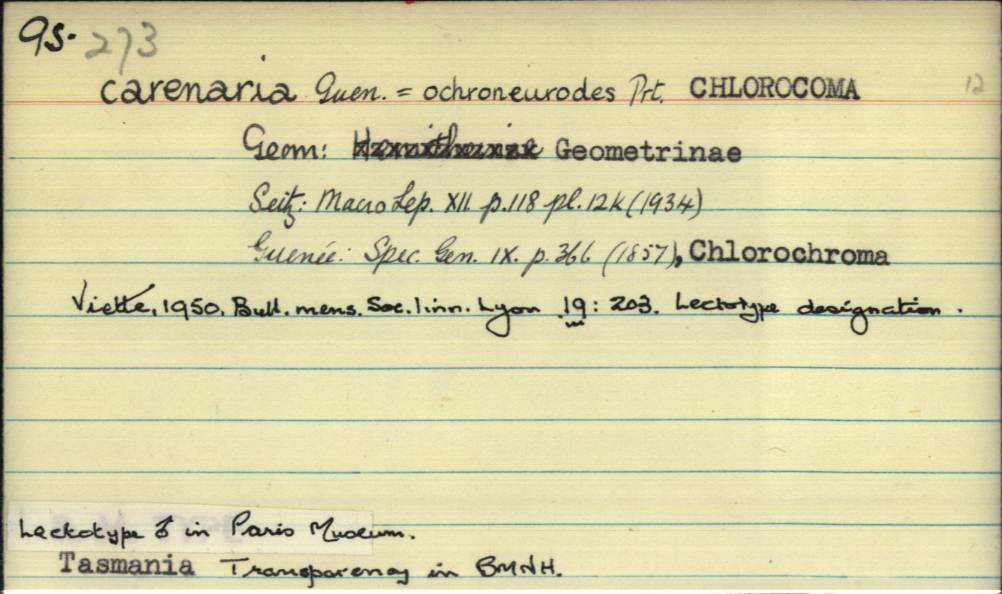 9s. 273
carenaria Guen. = ochroneurodes Prt. CHLOROCOMA 12
Geom: Geometrinae
Seitz: Macro Lep. XII p.118 pl.12k (1934)
Guenée: Spec. Gen. IX. p.366 (1857), Chlorochroma
Viette, 1950. Bull. mens. Soc. linn. Lyon 19: 203. Lectotype designation.
Lectotype ♂ in Paris Museum.
Tasmania Transparency in BMNH.